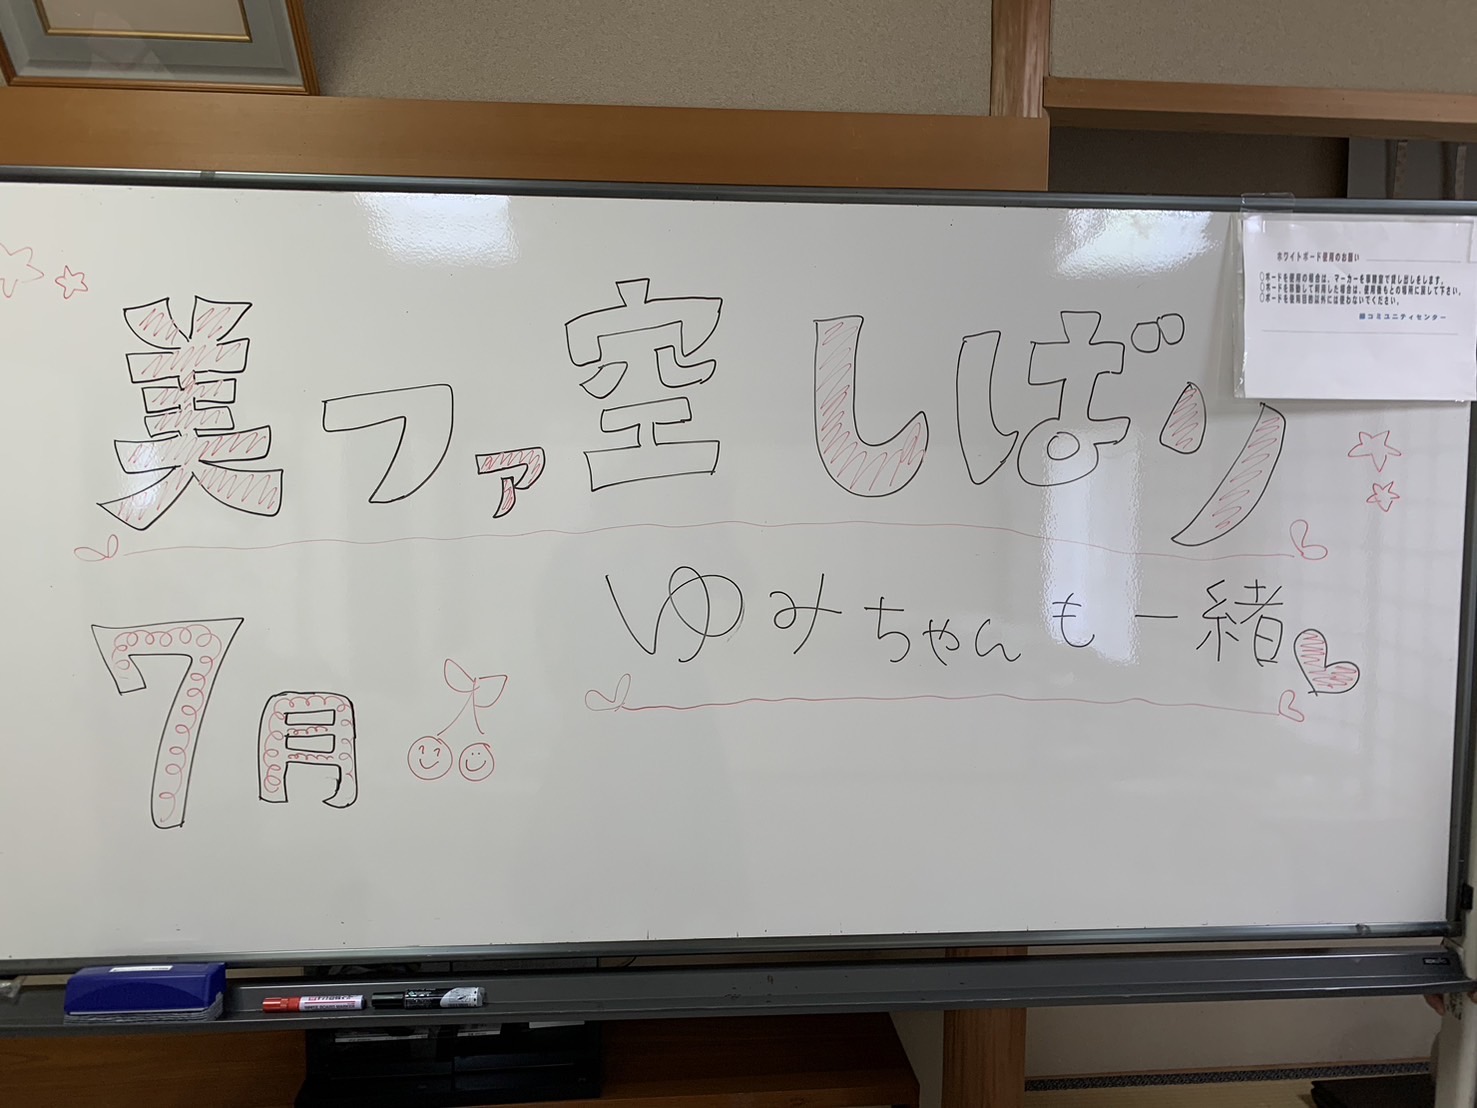 美ファ空しばり
ゆみちゃんも一緒
7月
ホワイトボード使用のお願い
○ボードを使用の場合は、マーカーを事務室で貸し出しをします。
○ボードを移動して利用した場合は、使用後もとの場所に戻して下さい。
○ボードを使用目的以外には使わないでください。
コミュニティセンター